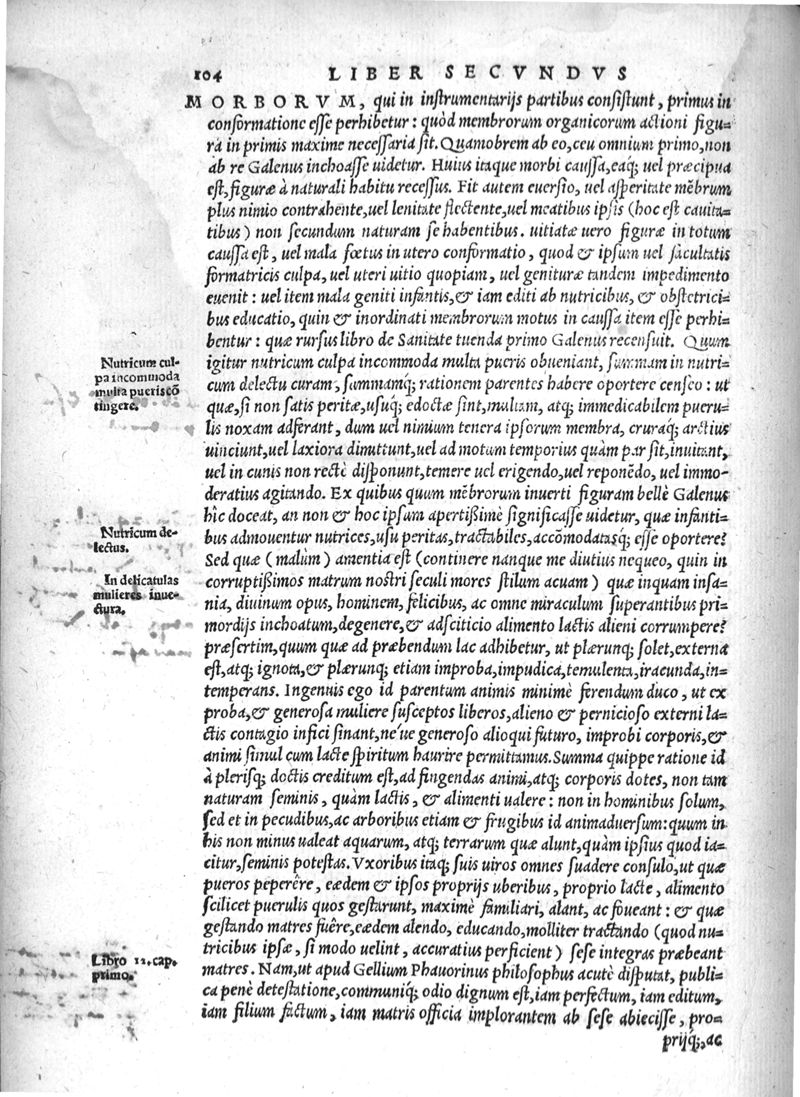 104 LIBER SECVNDVS
MORBORVM, qui in instrumentarijs partibus consistunt, primus in
conformatione esse perhibetur: quòd membrorum organicorum actioni figu=
ra in primis maxime necessaria sit. Quamobrem ab eo, ceu omnium primo, non
ab re Galenus inchoasse uidetur. Huius itaque morbi caussa, eaq; uel præcipua
est, figuræ à naturali habitu recessus. Fit autem euersio, uel asperitate mẽbrum
plus nimio contrahente, uel lenitate flectente, uel meatibus ipsis (hoc est cauita=
tibus) non secundum naturam se habentibus. uitiatæ uero figuræ in totum
caussa est, uel mala fœtus in utero conformatio, quod & ipsum uel facultatis
formatricis culpa, uel uteri uitio quopiam, uel genituræ tandem impedimento
euenit: uel item mala geniti infantis, & iam editi ab nutricibus, & obstetrici=
bus educatio, quin & inordinati membrorum motus in caussa item esse perhi=
bentur: quæ rursus libro de Sanitate tuenda primo Galenus recensuit. Quum
igitur nutricum culpa incommoda multa pueris obueniant, summam in nutri=
cum delectu curam, summamq́; rationem parentes habere oportere censeo: ut
quæ, si non satis peritæ, usuq́; edoctæ sint, multam, atq; immedicabilem pueru=
lis noxam adferant, dum uel nimium tenera ipsorum membra, cruraq́; arctius
uinciunt, uel laxiora dimittunt, uel ad motum temporius quàm par sit, inuitant,
uel in cunis non rectè disponunt, temere uel erigendo, uel reponẽdo, uel immo=
deratius agitando. Ex quibus quum mẽbrorum inuerti figuram bellè Galenus
hîc doceat, an non & hoc ipsum apertißimè significasse uidetur, quæ infanti=
bus admouentur nutrices, usu peritas, tractabiles, accõmodatasq́; esse oportere?
Sed quæ (malùm) amentia est (continere nanque me diutius nequeo, quin in
corruptißimos matrum nostri seculi mores stilum acuam) quæ inquam insa=
nia, diuinum opus, hominem, felicibus, ac omne miraculum superantibus pri=
mordijs inchoatum, degenere, & adsciticio alimento lactis alieni corrumpere?
præsertim, quum quæ ad præbendum lac adhibetur, ut plærunq; solet, externa
est, atq; ignota, & plærunq; etiam improba, impudica, temulenta, iracunda, in=
temperans. Ingenuis ego id parentum animis minimè ferendum duco, ut ex
proba, & generosa muliere susceptos liberos, alieno & pernicioso externi la=
ctis contagio infici sinant, ne'ue generoso alioqui futuro, improbi corporis, &
animi simul cum lacte spiritum haurire permittamus. Summa quippe ratione id
à plerisq; doctis creditum est, ad fingendas animi, atq; corporis dotes, non tam
naturam seminis, quàm lactis, & alimenti ualere: non in hominibus solum,
sed et in pecudibus, ac arboribus etiam & frugibus id animaduersum: quum in
his non minus ualeat aquarum, atq; terrarum quæ alunt, quàm ipsius quod ia=
citur, seminis potestas. Vxoribus itaq; suis uiros omnes suadere consulo, ut quæ
pueros peperêre, eædem & ipsos proprijs uberibus, proprio lacte, alimento
scilicet puerulis quos gestarunt, maximè familiari, alant, ac foueant: & quæ
gestando matres fuêre, eædem alendo, educando, molliter tractando (quod nu=
tricibus ipsæ, si modo uelint, accuratius perficient) sese integras præbeant
matres. Nam, ut apud Gellium Phauorinus philosophus acutè disputat, publi=
ca penè detestatione, communiq́; odio dignum est, iam perfectum, iam editum,
iam filium factum, iam matris officia implorantem ab sese abiecisse, pro=
prijq́;, ac
Nutricum cul=
pa incommoda
multa pueris cõ
tingere.
Nutricum de=
lectus.
In delicatulas
mulieres inue=
ctura.
Libro 12. cap.
primo.